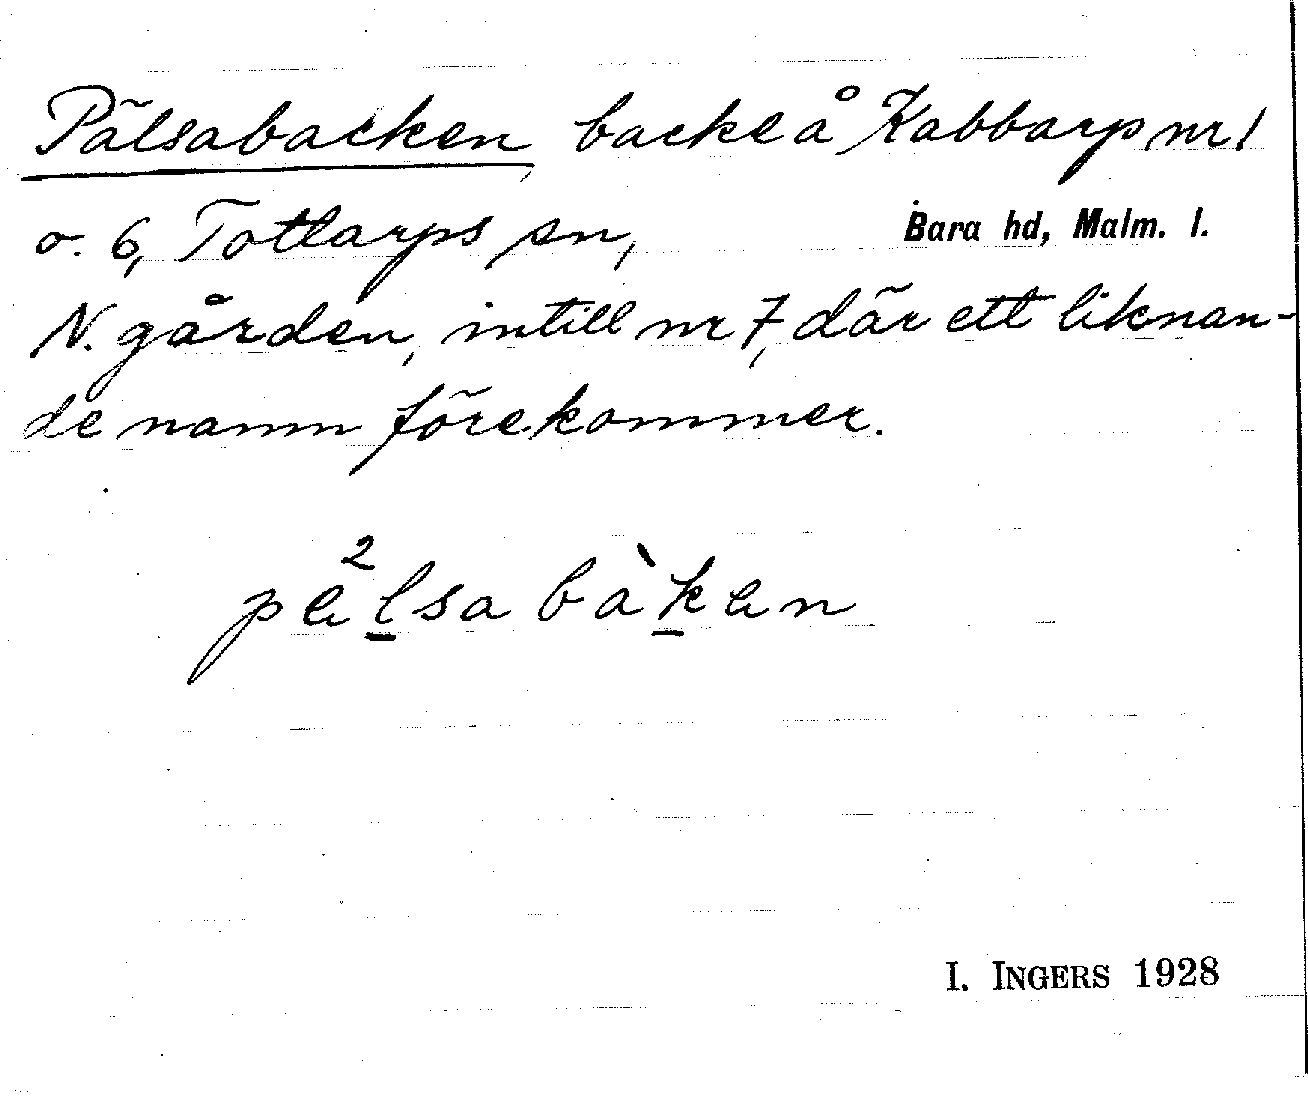 Pälsabacken, backe å Kabbarp nr 1
o. 6, Tottarps sn, Bara hd, Malm. l.
N. gården, intill nr 7, där ett liknan-
de namn förekommer.
pä²lsa bàkæn
I. INGERS 1928